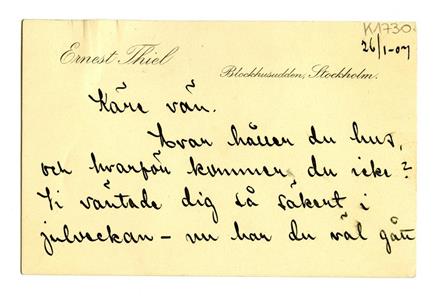 K1730.
26/1-07
Ernest Thiel
Blockhusudden, Stockholm.
Käre vän.
Hvar håller du hus,
och hvarför kommer du icke?
Vi väntade dig så säkert i
julveckan – nu har du väl gått